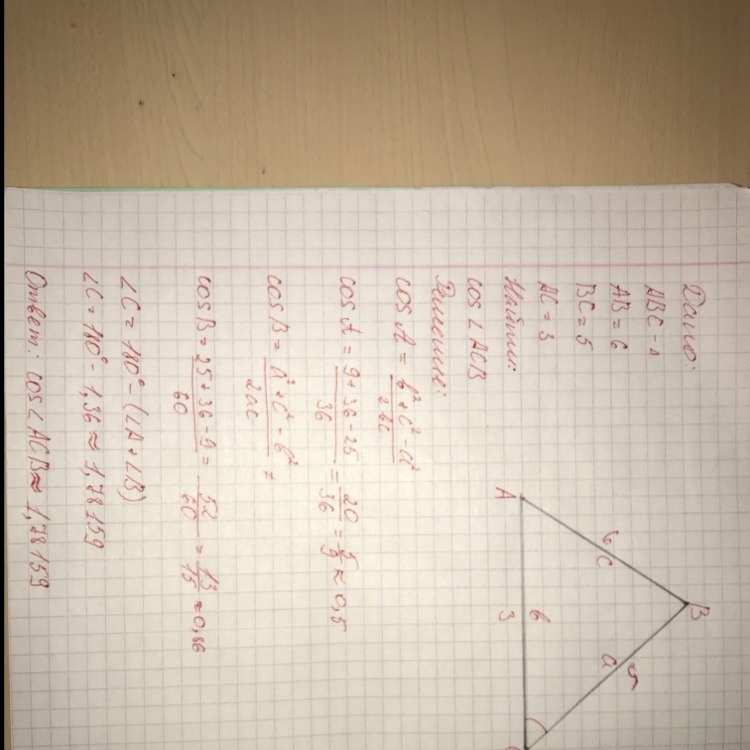 Дано:
ABC - Δ
AB = 6
BC = 5
AC = 3
Найти:
cos ∠ACB
Решение:
cos A = b² + c² - a² / 2bc
cos A = 9 + 36 - 25 / 36 = 20 / 36 = 5 / 9 ≈ 0,5
cos B = a² + c² - b² / 2ac
cos B = 25 + 36 - 9 / 60 = 52 / 60 = 13 / 15 ≈ 0,86
∠C = 180° - (∠A + ∠B)
∠C = 180° - 1,36 ≈ 1,78159
Ответ: cos ∠ACB ≈ 1,78159
B
6 c
a 5
A
b
3